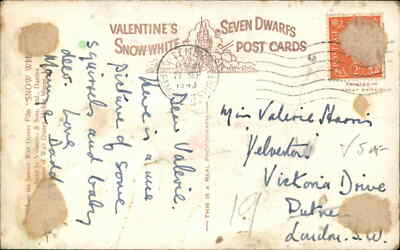 VALENTINE'S
SNOW-WHITE
SEVEN DWARFS
POST CARDS
Dear Valerie.
Here is a nice
picture of some
squirrels and baby
deer. Love
THIS IS A REAL PHOTOGRAPH
"SNOW
Miss Valerie Harris
Yelverton
Victoria Drive
Putney
London. S.W.
19